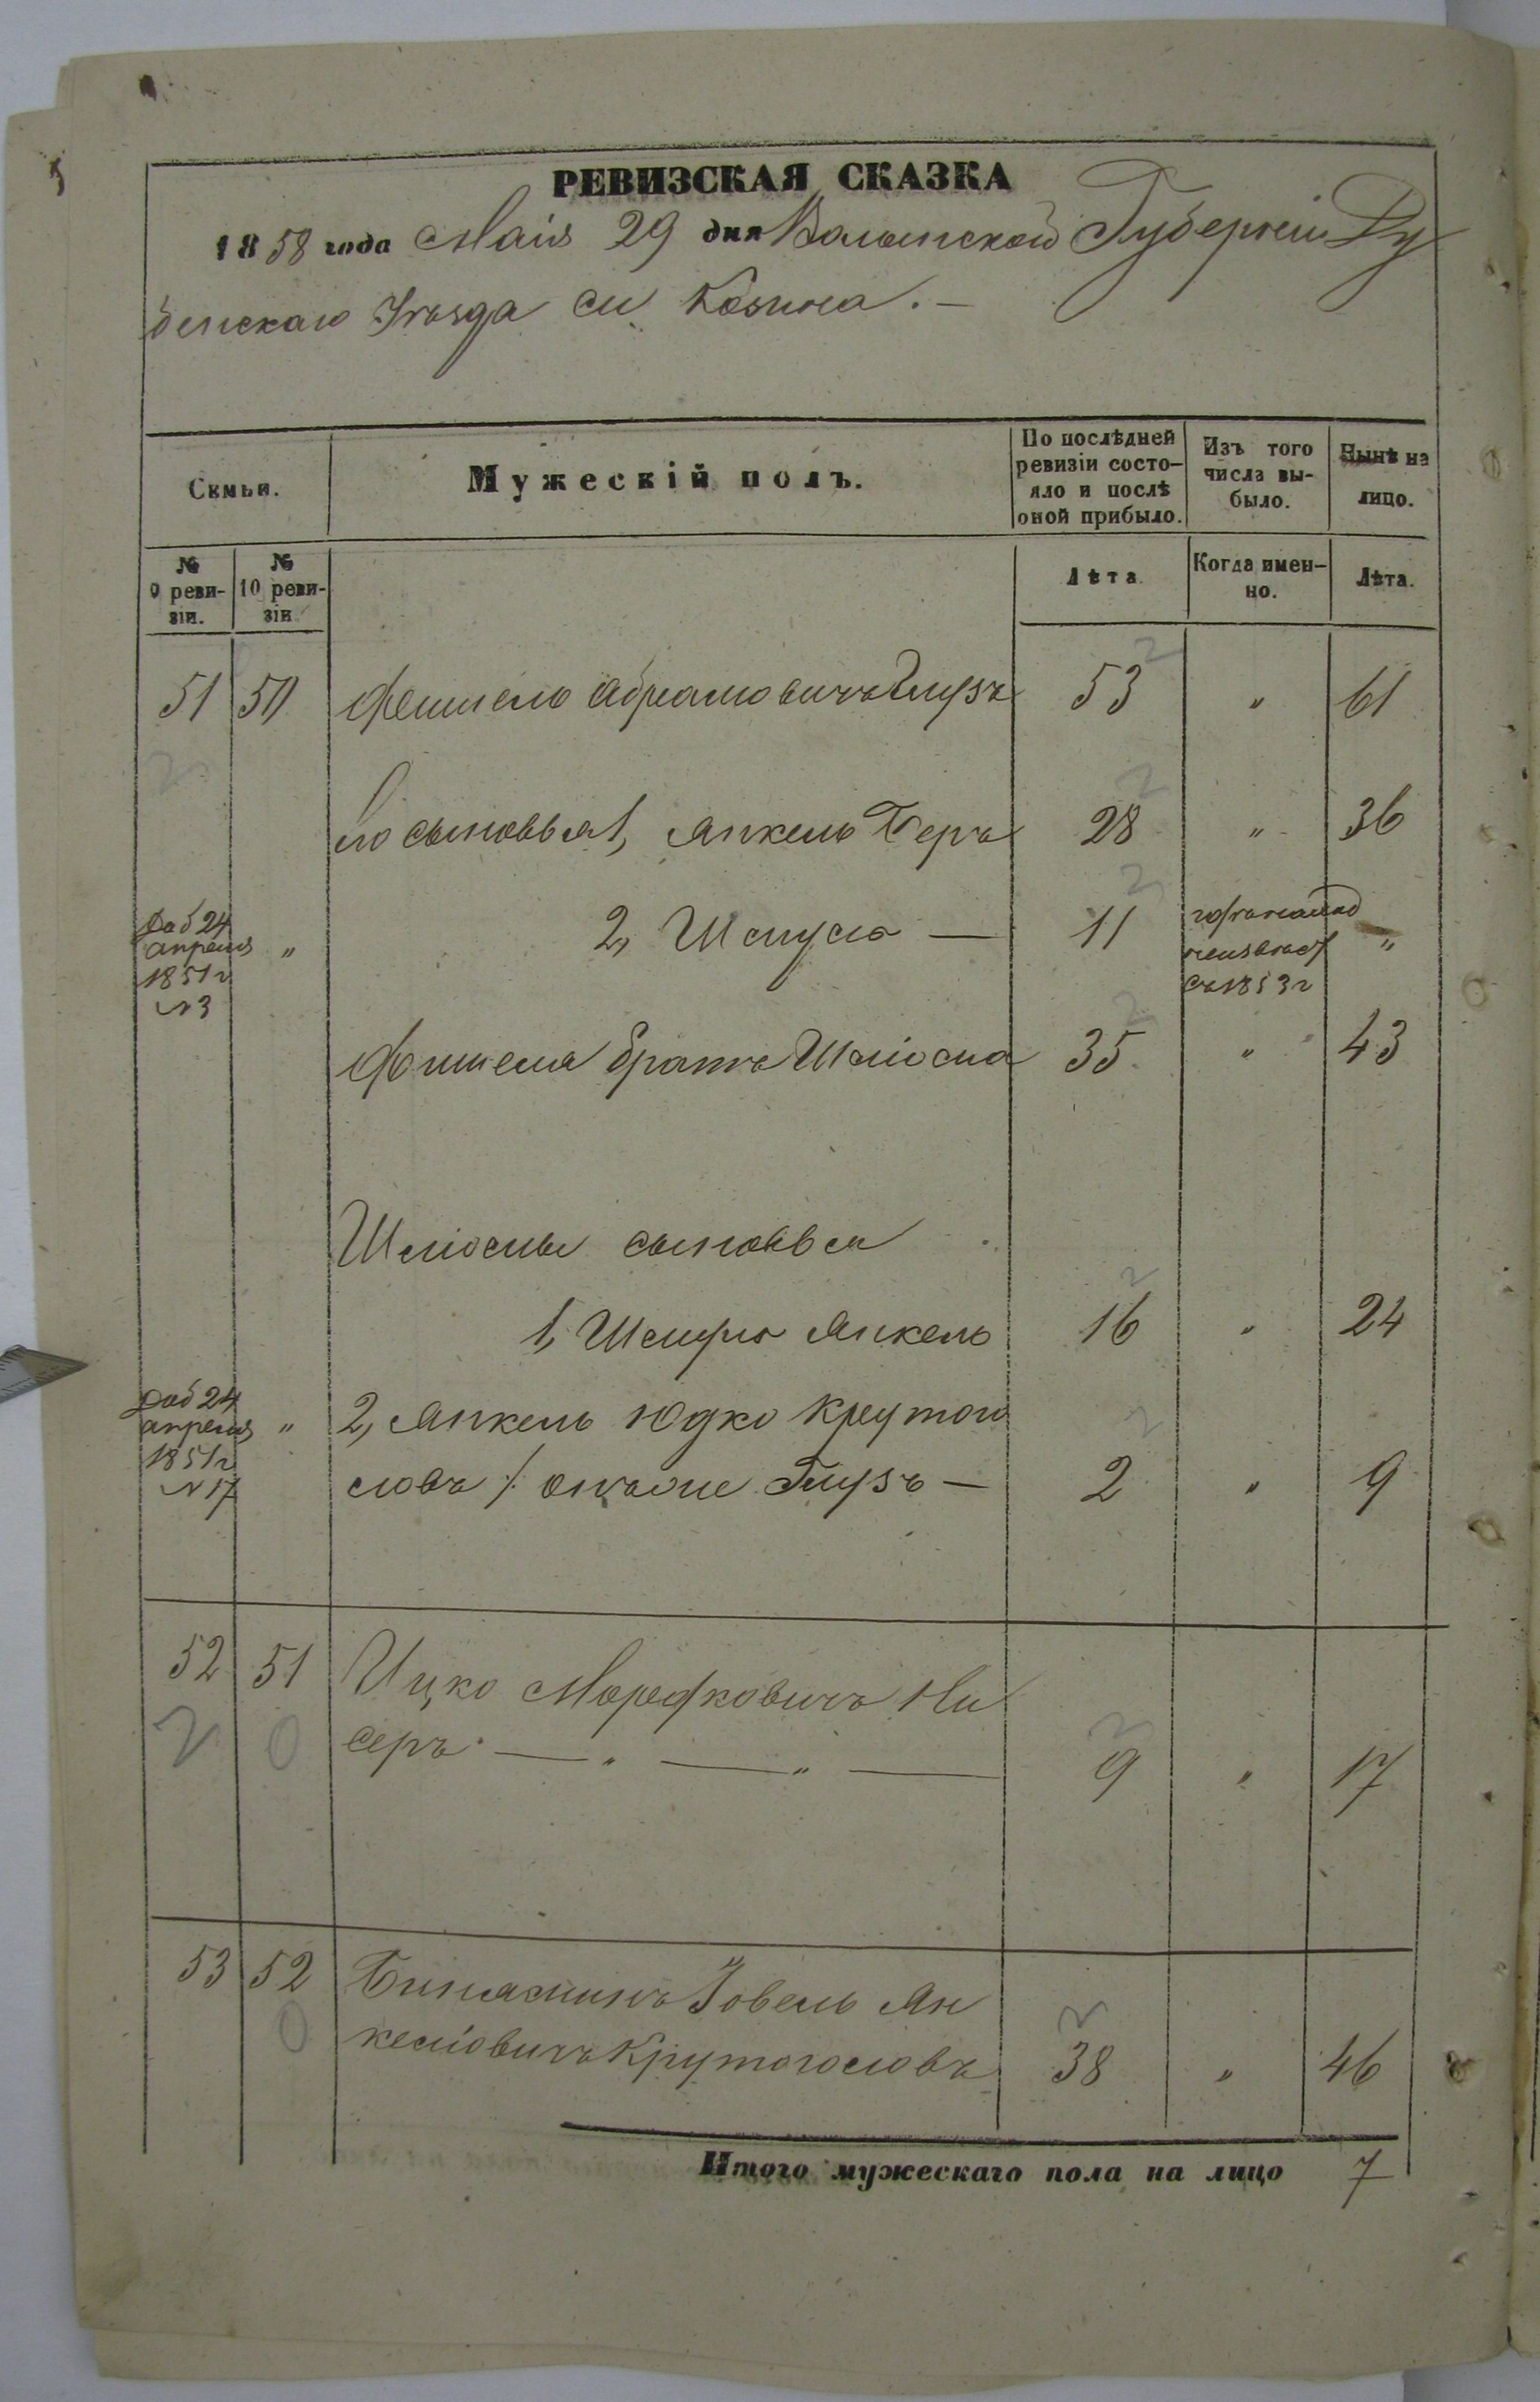 РЕВИЗСКАЯ СКАЗКА
1858 года Маія 29 дня Волынской Губерніи Ду
бенскаго Уѣзда м Козина. —
Семьи.
Мужескій полъ.
По послѣдней ревизіи состо-
яло и послѣ
оной прибыло.
Изъ того
числа вы-
было.
Нынѣ на
лицо.
№
9 реви-
зіи.
№
10 реви-
зіи
Лѣта
Когда имен-
но.
Лѣта.
51 50 Фишель Абрамовичъ Глузъ 53 " 61
Его сыновья 1, Янкель Беръ 28 " 36
Доб 24
апреля "
1851 г
N 3
2, Шмуль — 11
съ 1853 г
"
Фишеля братъ Шліома 35 " 43
Шліомы сыновья
1, Шмуль Янкель 16 " 24
Доб 24
апреля "
1851 г
N 17
2, Янкель Юдко Крутого
ловъ онъ же Глузъ — 2 " 9
52 51 Ицко Мордковичъ Ни
серъ — " — " — 9 " 17
53 52 Биняминъ Іовель Ян
келіовичъ Крутоголовъ 38 " 46
Итого мужескаго пола на лицо 7